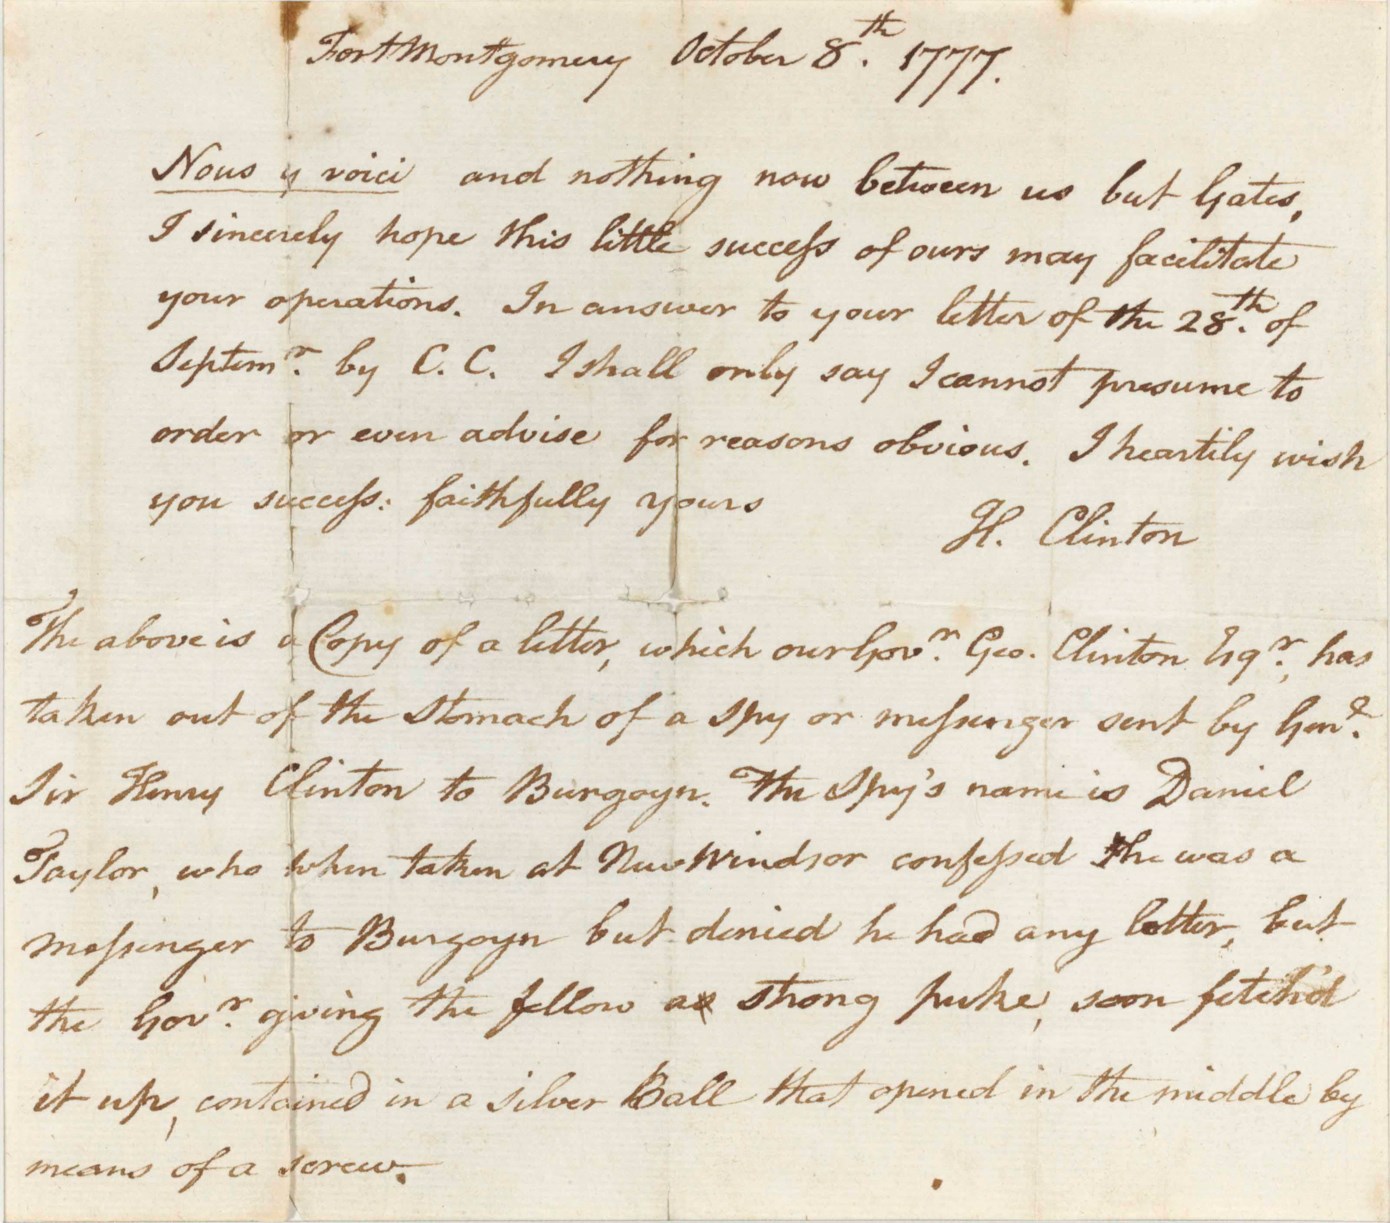 Fort Montgomery October 8.th 1777.
Nous y voici and nothing now between us but Gates,
I sincerely hope this little success of ours may facilitate
your operations. In answer to your letter of the 28.th of
Septemr. by C. C. I shall only say I cannot presume to
order or even advise for reasons obvious. I heartily wish
you success: faithfully yours
H. Clinton
The above is a Copy of a letter, which our Govr. Geo. Clinton Esqr., has
taken out of the stomach of a spy or messenger sent by Genl.
Sir Henry Clinton to Burgoyn. The Spy's name is Daniel
Taylor, who when taken at New Windsor confessed he was a
messenger to Burgoyn but denied he had any letter, but
the Govr. giving the fellow a strong puke, soon fetch'd
it up, contained in a silver Ball that opened in the middle by
means of a screw.